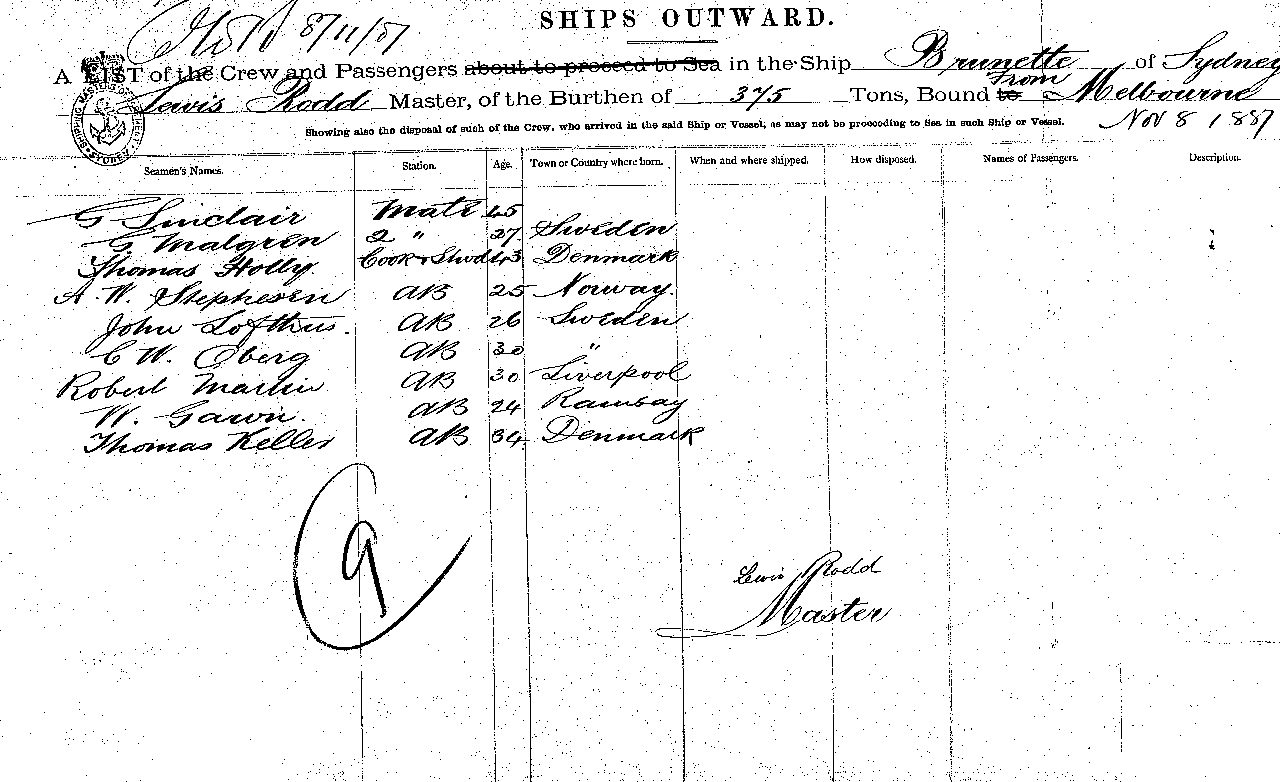 8/11/87
SHIPS OUTWARD.
A LIST of the Crew and Passengers about to proceed to Sea in the Ship Brunette of Sydney
Lewis Rodd Master, of the Burthen of 375 Tons, Bound to From Melbourne
Showing also the disposal of such of the Crew, who arrived in the said Ship or Vessel, as may not be proceeding to Sea in such Ship or Vessel. Nov 8 1887
SHIPPING MASTER'S OFFICE SYDNEY
Seamen's Names. Station. Age. Town or Country where born. When and where shipped. How disposed. Names of Passengers. Description.
G Sinclair Mate 45
G Malgren 2 " 27 Sweden
Thomas Holly Cook & Stwd 43 Denmark
A. W. Stephesen AB 25 Norway.
John Lofthus. AB 26 Sweden
C W. Oberg AB 30 "
Robert Martin AB 30 Liverpool
W. Gawn. AB 24 Ramsay
Thomas Keller AB 34 Denmark
9
Lewis Rodd
Master